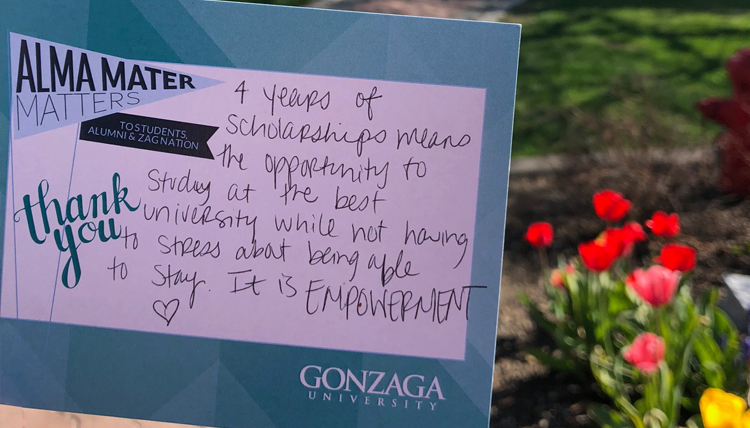 ALMA MATER
MATTERS
TO STUDENTS,
ALUMNI & ZAG NATION
thank
you
4 years of
scholarships means
the opportunity to
study at the best
university while not having
to stress about being able
to stay. It is EMPOWERMENT
♡
GONZAGA
UNIVERSITY